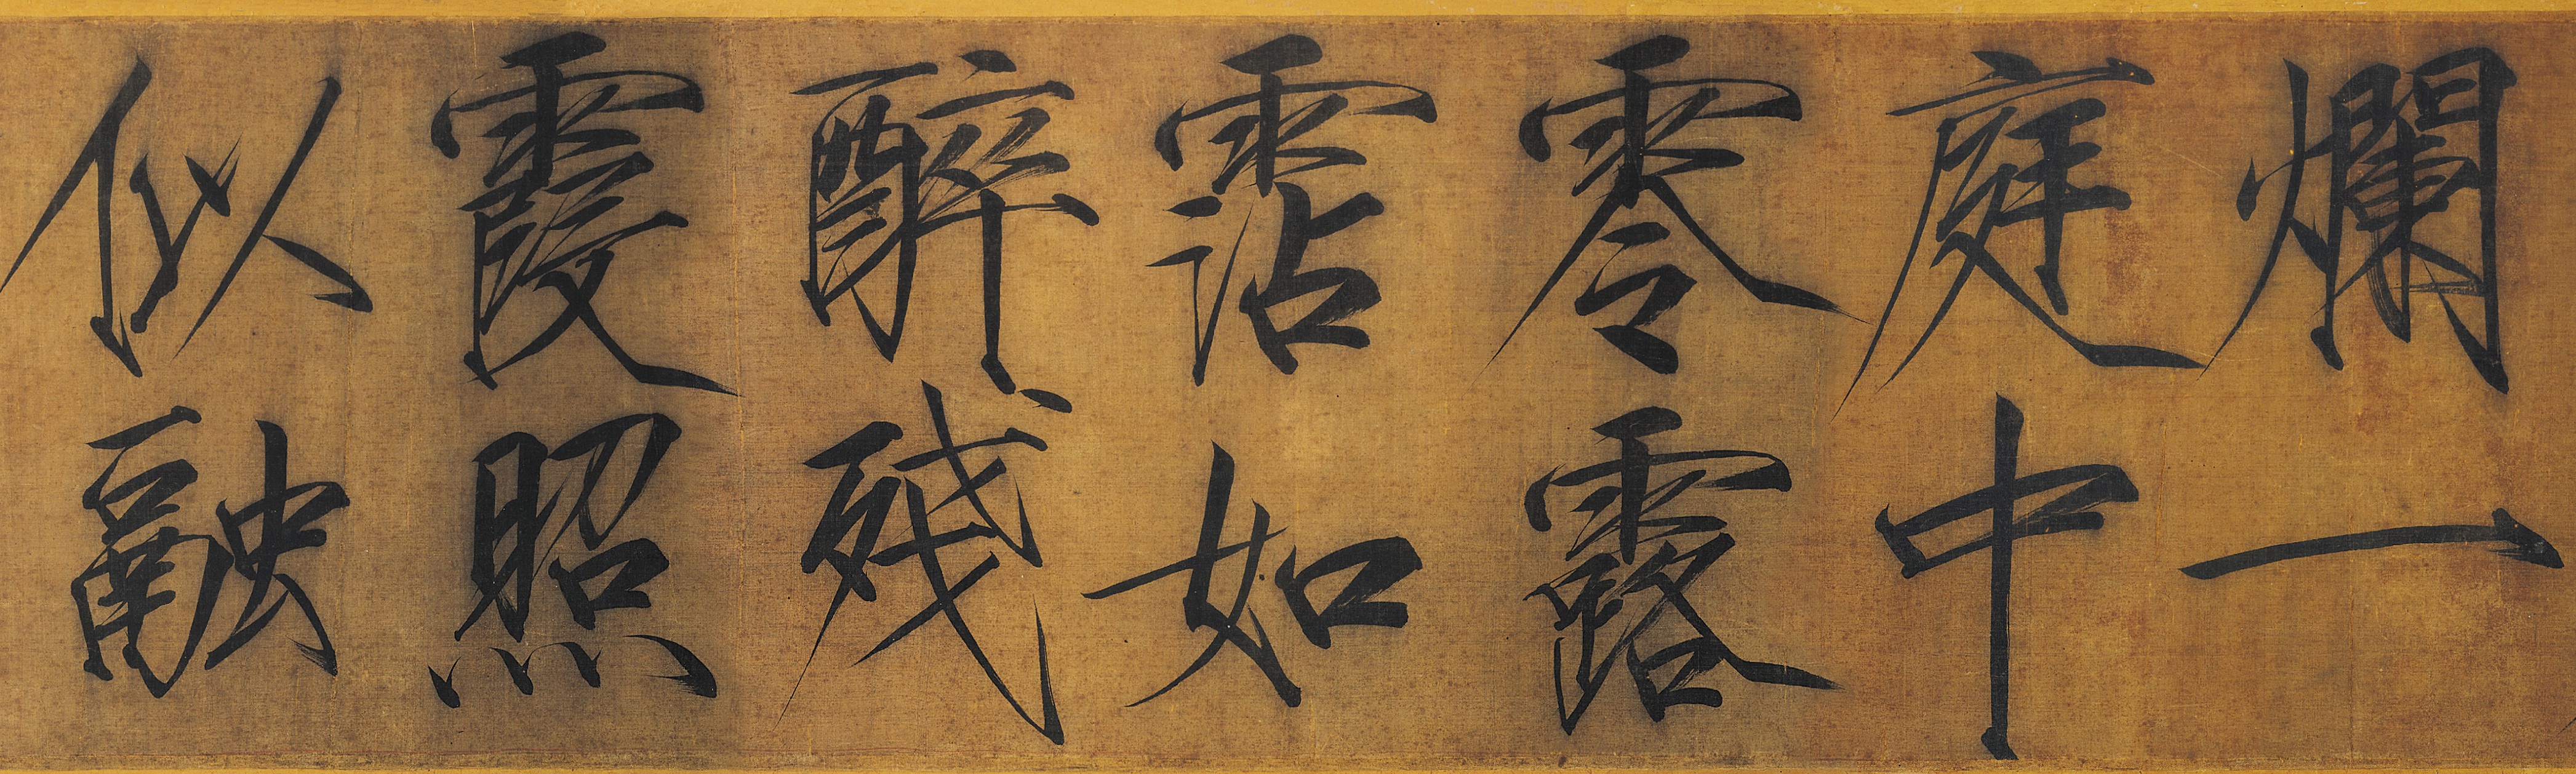 爛一
庭中
零露
霑如
醉殘
霞照
似融